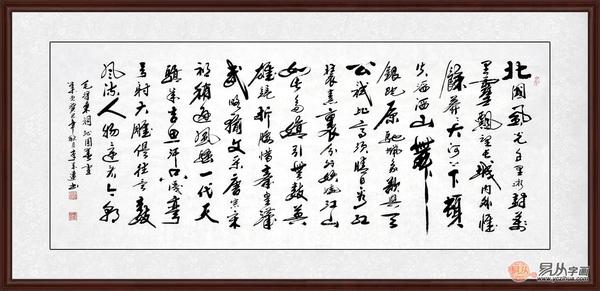 北国风光千里冰封万
里雪飘望长城内外惟
馀莽莽大河上下顿
失滔滔山舞
银蛇原驰蜡象欲与天
公试比高须晴日看红
装素裹分外妖娆江山
如此多娇引无数英
雄竞折腰惜秦皇汉
武略输文采唐宗宋
祖稍逊风骚一代天
骄成吉思汗只识弯
弓射大雕俱往矣数
风流人物还看今朝
毛泽东词沁园春雪
易从字画
www.yczihua.com